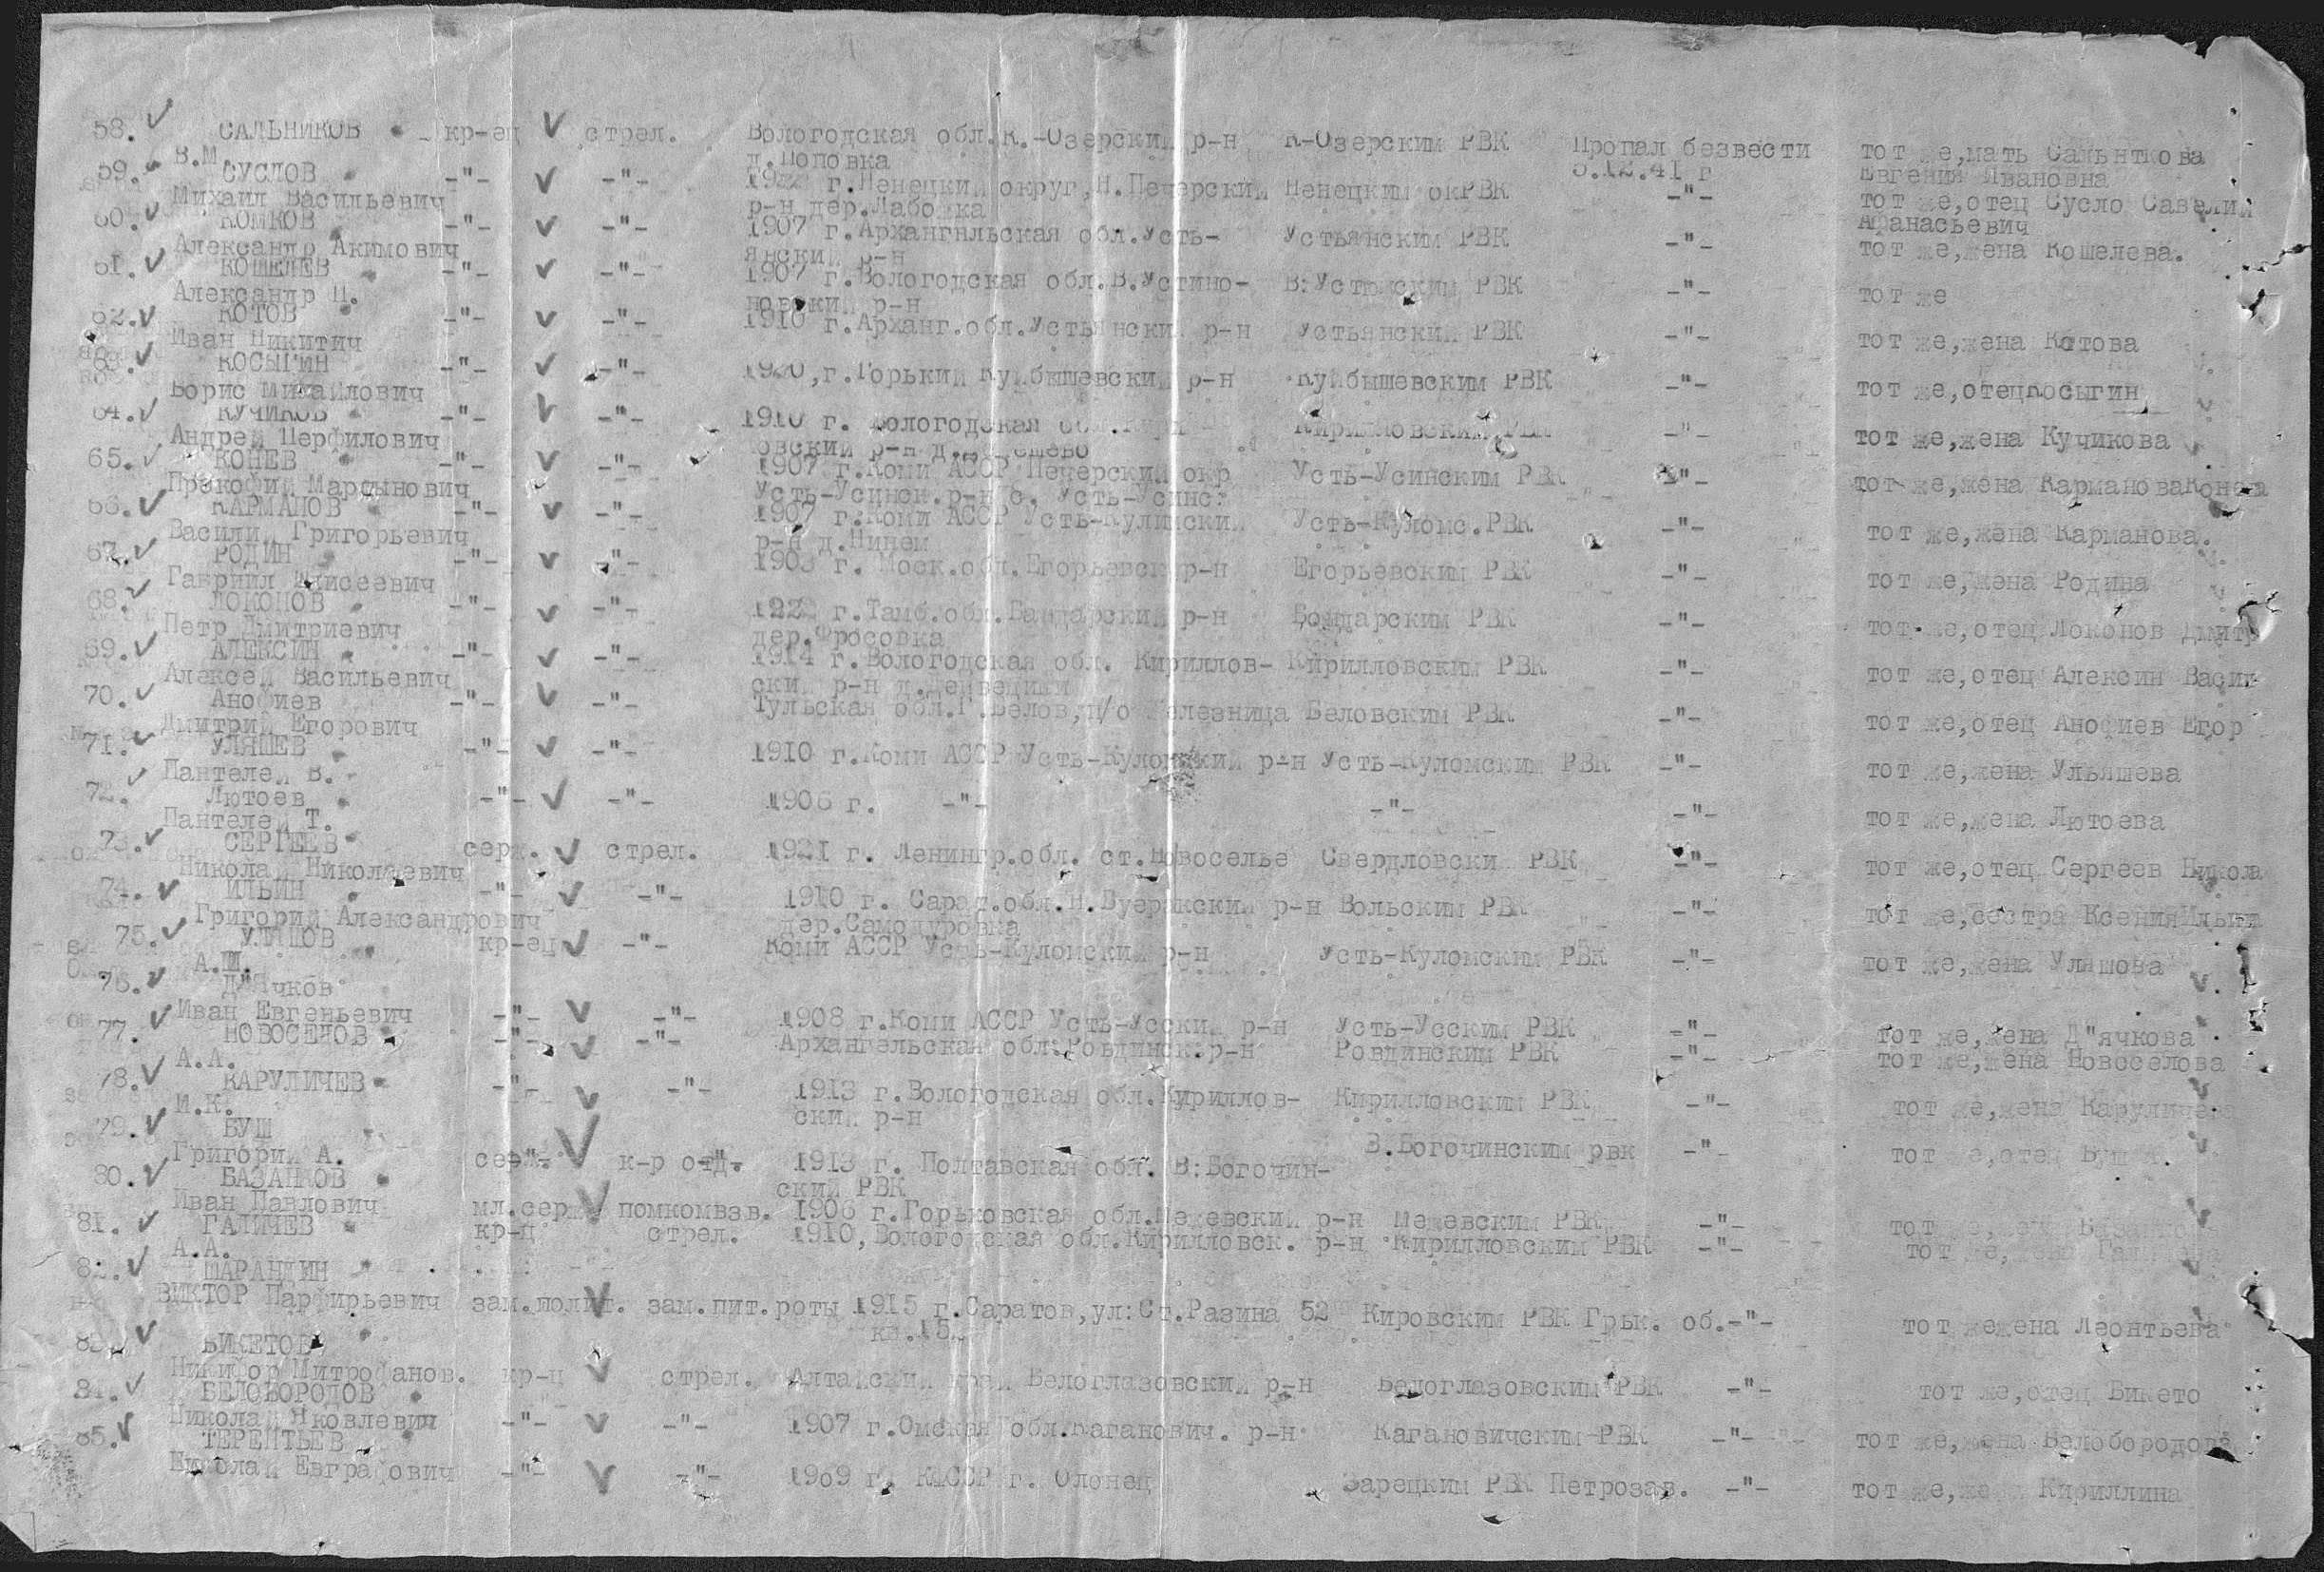 58. САЛЬНИКОВ кр-ец стрел. Вологодская обл.К.-Озерский р-н К-Озерским РВК Пропал безвести тот же,мать Сальнткова
В.М. д.Поповка 5.12.41 г Евгения Ивановна
59. СУСЛОВ -"- -"- г.Ненецкий округ,Н.Печерский Ненецким окРВК -"- тот же,отец Сусло Савелий
Михаил Васильевич р-н дер.Лабожка Афанасьевич
60. КОМКОВ -"- -"- 1907 г.Архангнльская обл.Усть- Устьянским РВК -"- тот же,жена Кошелева.
Александр Акимович янский р-н
61. КОШЕЛЕВ -"- -"- 1907 г.Вологодская обл.В.Устино- В:Устюжским РВК -"- тот же
Александр П. новский р-н
62. КОТОВ -"- -"- 1910 г.Арханг.обл.Устьянский р-н Устьянский РВК -"- тот же,жена Котова
Иван Никитич
63. КОСЫГИН -"- -"- 1920,г.Горький Куйбышевский р-н Куйбышевским РВК -"- тот же,отецКосыгин
Борис Михайлович
64. КУЧИКОВ -"- -"- 1910 г. Вологодская обл. Кирилловским РВК -"- тот же,жена Кучикова
Андрей Перфилович овский р-н
65. КОНЕВ -"- -"- 1907 г.Коми АССР Печерский окр Усть-Усинским РВК -"- тот же,жена КармановаКонева
Прокофий Мартынович Усть-Усинск.р-н с. Усть-Усинс:
66. КАРМАНОВ -"- -"- 1907 г.Коми АССР Усть-Кулимский Усть-Куломс.РВК -"- тот же,жена Карманова.
Василий Григорьевич р-н д.Нинем
67. РОДИН -"- -"- 1903 г. Моск.обл.Егорьевск р-н Егорьевским РВК -"- тот же,жена Родина
Гавриил Елисеевич
68. ЛОКОНОВ -"- -"- 1922 г.Тамб.обл.Бандарский р-н Бондарским РВК -"- тот же,отец Локонов Дмитр
Петр Дмитриевич дер.Фросовка
69. АЛЕКСИН -"- -"- 1914 г.Вологодская обл. Кириллов- Кирилловским РВК -"- тот же,отец Алексин Васил
Алексей Васильевич ский р-н
70. Анофиев -"- -"- Тульская обл.Г.Белов,п/о Железница Беловским РВК -"- тот же,отец Анофиев Егор
Дмитрий Егорович
71. УЛЯШЕВ -"- -"- 1910 г.Коми АССР Усть-Куломский р-н Усть-Куломским РВК -"- тот же,жена Ульяшева
Пантелей В.
72. Лютоев -"- -"- 1906 г. -"- -"- -"- тот же,жена Лютоева
Пантелей Т.
73. СЕРГЕЕВ серж. стрел. 1921 г. Ленингр.обл. ст.Новоселье Свердловский РВК -"- тот же,отец Сергеев Никола
Николай Николаевич
74. ИЛЬИН -"- -"- 1910 г. Сарат.обл.Н.Буеракский р-н Вольским РВК -"- тот же,сестра КсенияИльин
Григорий Александрович дер.Самодуровка
75. УЛЯШОВ кр-ец -"- Коми АССР Усть-Куломский р-н Усть-Куломским РВК -"- тот же,жена Уляшова
А.Ш.
76. Д"Ячков
Иван Евгеньевич -"- -"- 1908 г.Коми АССР Усть-Усский р-н Усть-Усским РВК -"- тот же,жена Д"ячкова
77. НОВОСЕЛОВ -"- -"- Архангельская обл.Ровдинск.р-н Ровдинским РВК -"- тот же,жена Новоселова
А.А.
78. КАРУЛИЧЕВ -"- -"- 1913 г.Вологодская обл.Кириллов- Кирилловским РВК -"- тот же,жена Каруличева
И.К. ский р-н
79. БУШ В.Богочинским рвк -"-
Григорий А. серж. к-р отд. 1913 г. Полтавская обл. В:Богочин- тот же,отец Буш
80. БАЗАНКОВ ский РВК
Иван Павлович мл.серж помкомвзв. 1906 г.Горьковская обл.Межевский р-н Межевским РВК -"- тот же,
81. ГАЛИЧЕВ кр-ц стрел. 1910,Вологодская обл.Кирилловск. р-н Кирилловским РВК -"- тот же,жена
А.А.
82. ШАРАНДИН
ВИКТОР Парфирьевич зам.полит. зам.пит.роты 1915 г.Саратов,ул:Ст.Разина 52 Кировским РВК Грьк. об.-"- тот жежена Леонтьева
кв.15
83. БИКЕТОВ
Никифор Митрофанов. кр-ц стрел. Алтайский край Белоглазовский р-н Белоглазовским РВК -"- тот же,отец Бикето
84. БЕЛОБОРОДОВ
Николай Яковлевич -"- -"- 1907 г.Омская обл.Каганович. р-н Кагановичским РВК -"- тот же,жена Белобородова
85. ТЕРЕНТЬЕВ
Николай Евграфович -"- -"- 1909 г. КФССР г. Олонец Зарецким РВК Петрозав. -"- тот же,же Кириллина